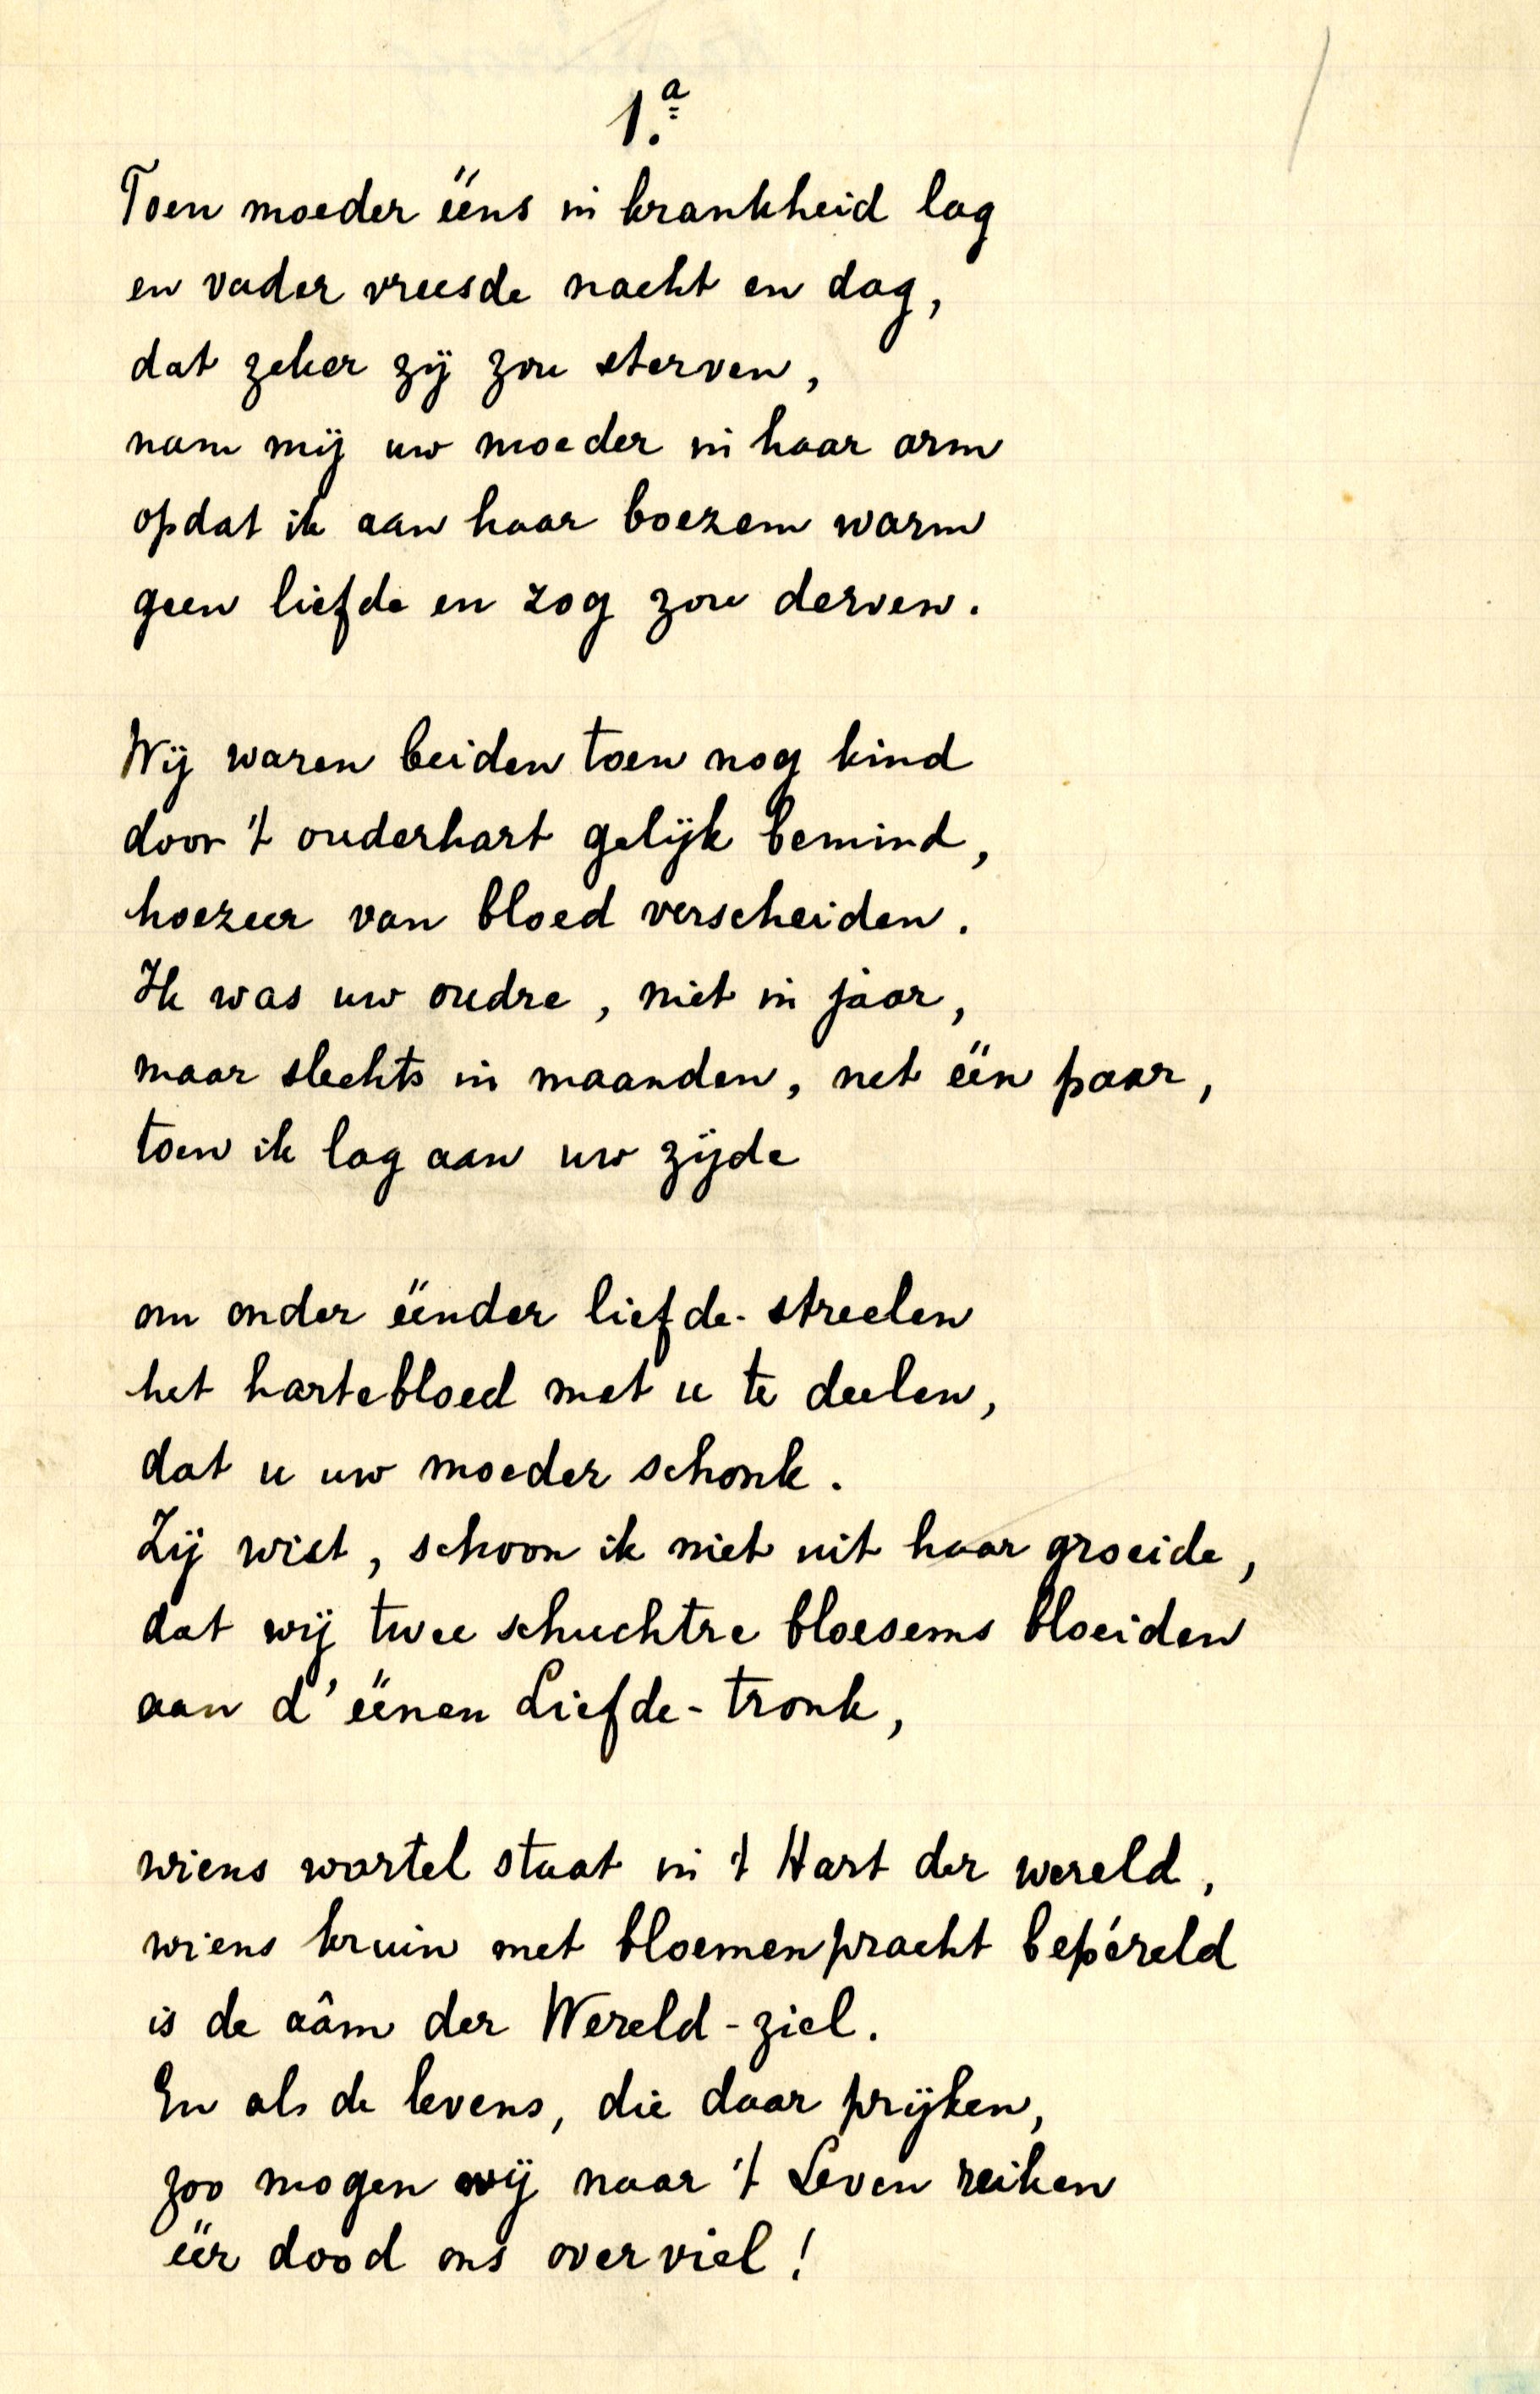 1.a
Toen moeder ééns in krankheid lag
en vader vreesde nacht en dag,
dat zeker zij zou sterven,
nam mij uw moeder in haar arm
opdat ik aan haar boezem warm
geen liefde en zog zou derven.
Wij waren beiden toen nog kind
door 't ouderhart gelijk bemind,
hoezeer van bloed verscheiden.
Ik was uw oudre, niet in jaar,
maar slechts in maanden, net één paar,
toen ik lag aan uw zijde
om onder éénder liefde-streelen
het hartebloed met u te deelen,
dat u uw moeder schonk.
Zij wist, schoon ik niet uit haar groeide,
dat wij twee schuchtre bloesems bloeiden
aan d' éénen Liefde-tronk,
wiens wortel staat in 't Hart der wereld,
wiens kruin met bloemenpracht bepéreld
is de aâm der Wereld-ziel.
En als de levens, die daar prijken,
zoo mogen wij naar 't Leven reiken
éér dood ons overviel!